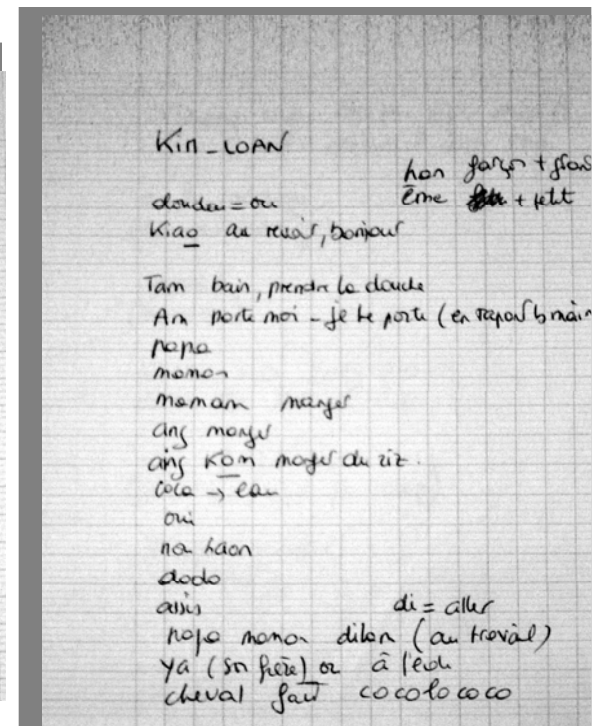 Kim-LOAN
han garçon + gran
doudou = ou
ème + petit
Kiao au revoir, bonjour
Tam bain, prendre la douche
Am porte moi - je te porte (en tapant b main
papa
maman
mamam manger
ang manger
ang Kom manger du riz.
coca → eau
oui
na haon
dodo
assis
di = aller
papa maman dilam (au travail)
ya (son frère) or à l'école
cheval fait cocolococo